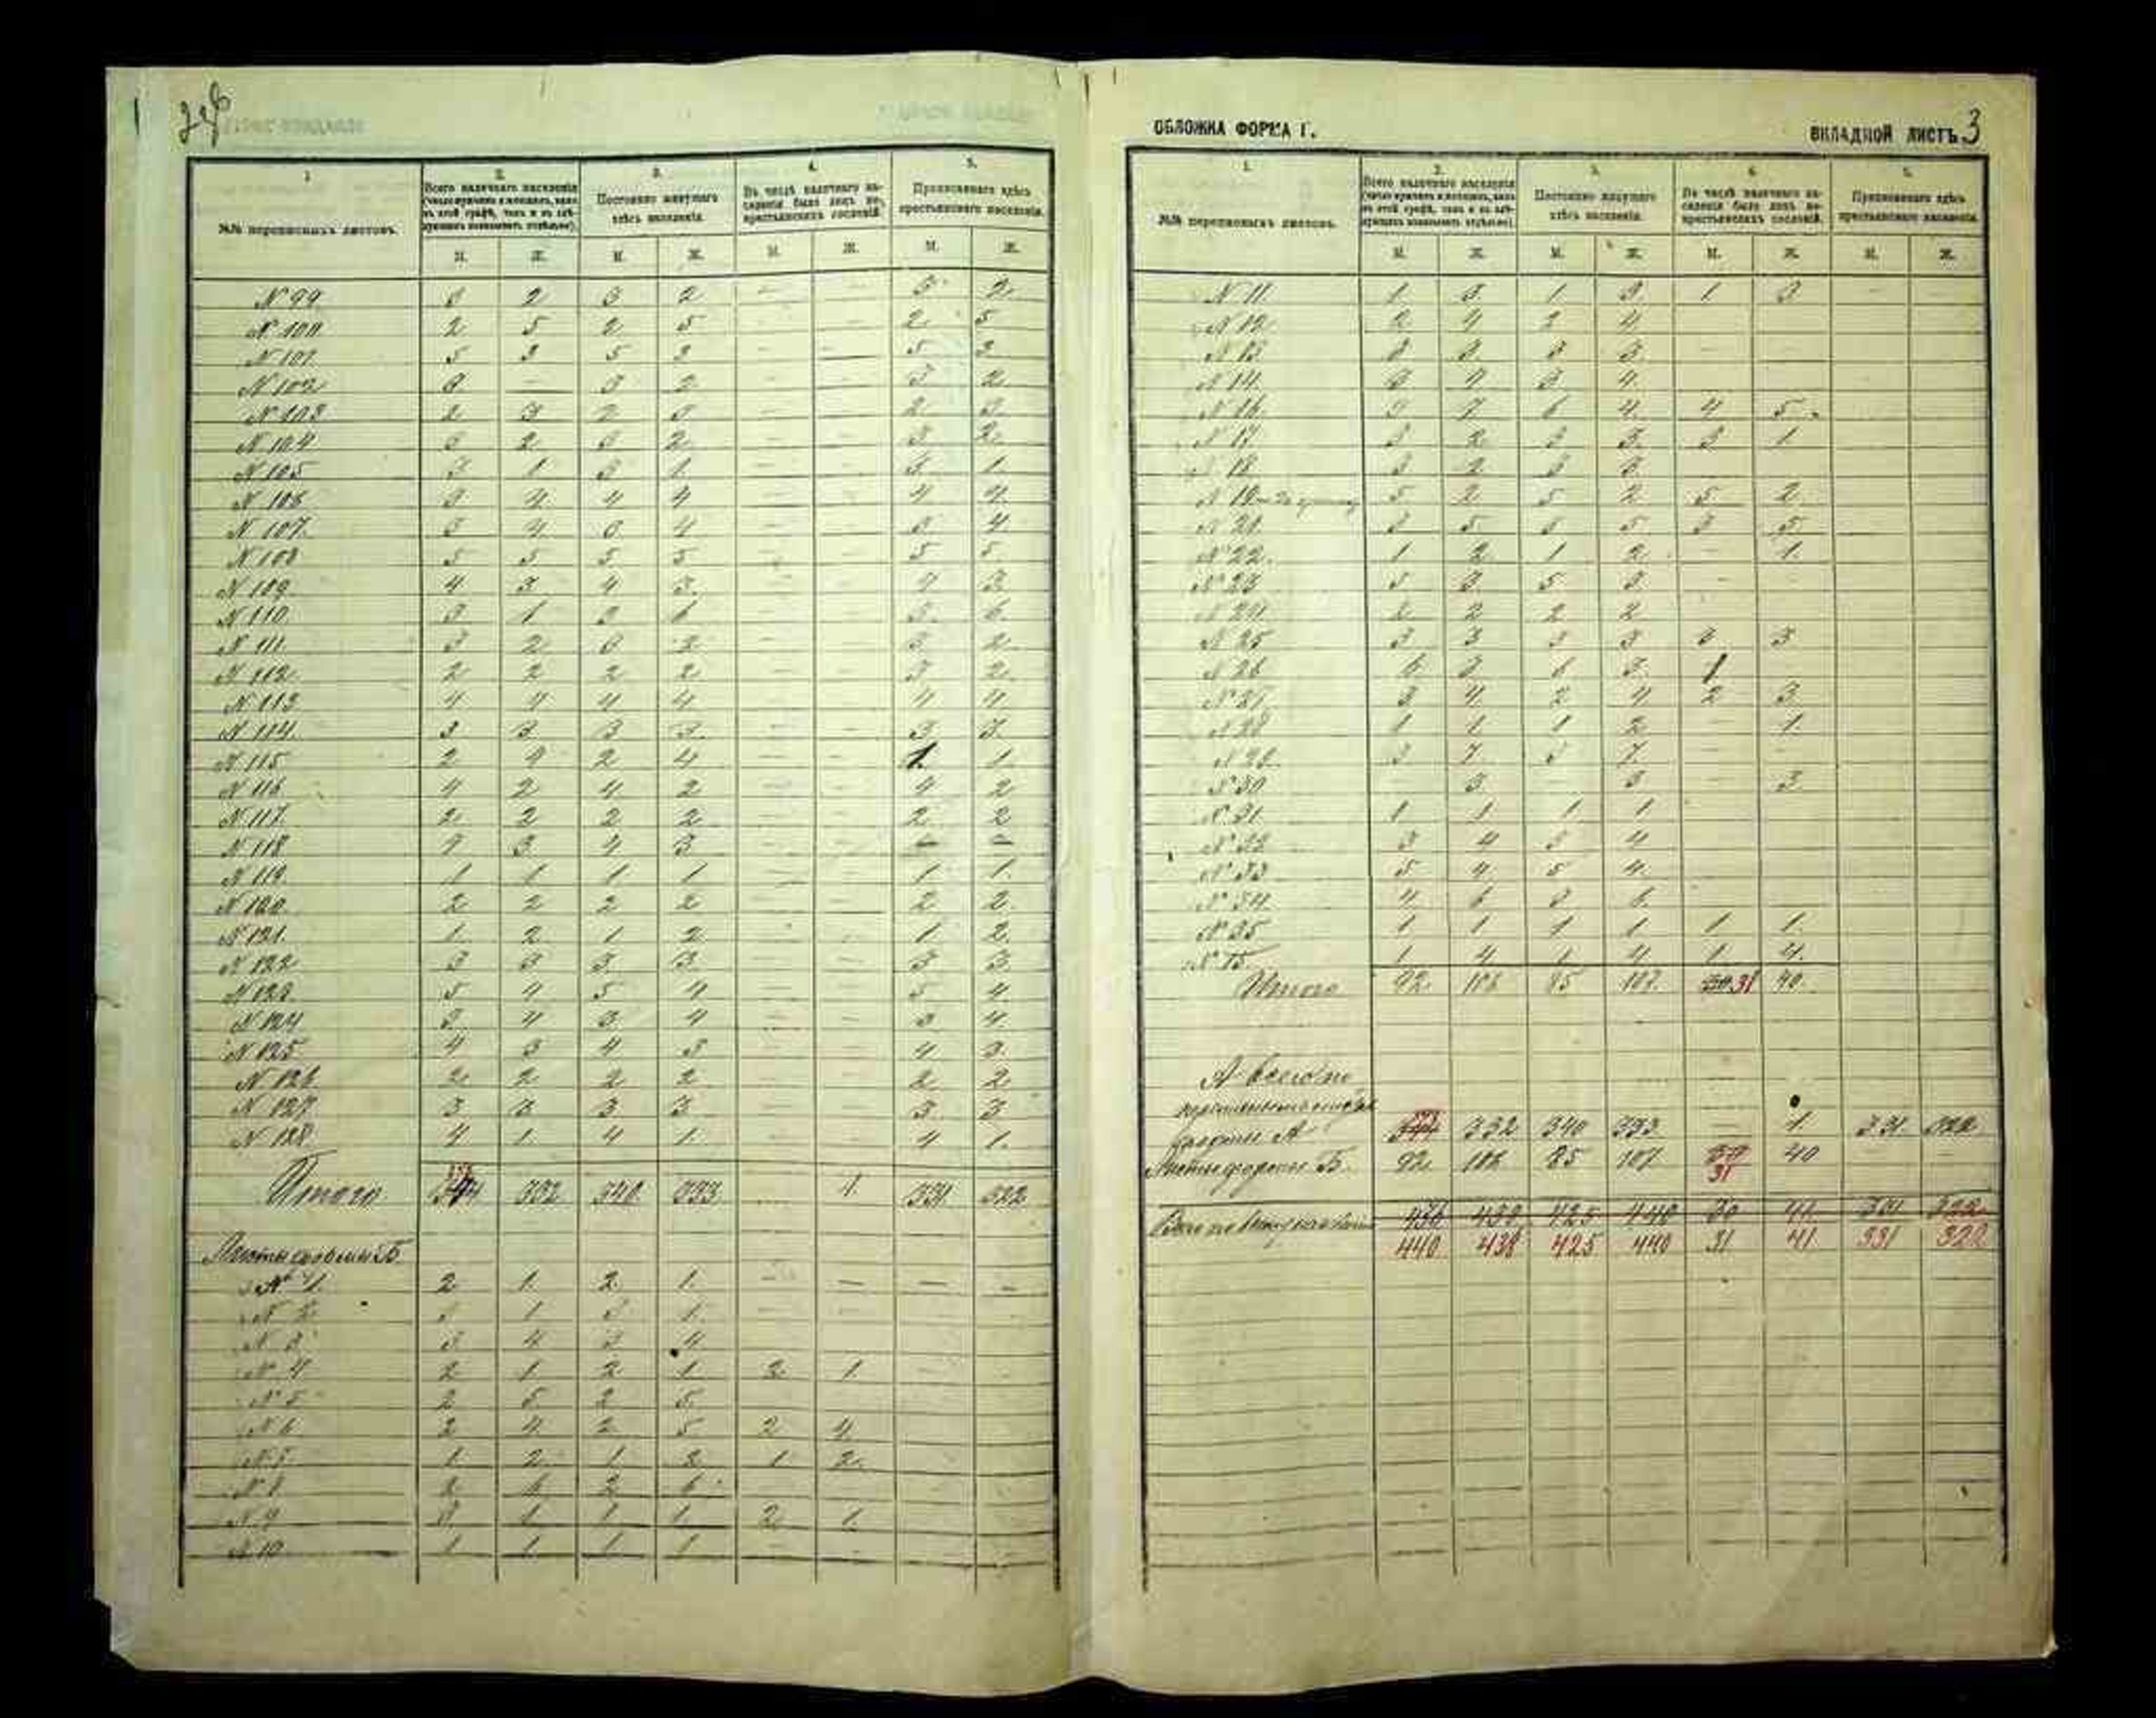 ОБЛОЖКА ФОРМА Г.
ВКЛАДНОЙ ЛИСТЪ 3
1 2. 3. 4. 5.
№№ переписныхъ листовъ.
Всего наличнаго населенія
Постоянно живущаго здѣсь населенія.
Въ числѣ наличнаго населенія было лицъ не крестьянскихъ сословій.
Приписаннаго здѣсь крестьянскаго населенія.
М. Ж. М. Ж. М. Ж. М. Ж.
N 99 3 2 3 2 — — 3 2
N 100 2 5 2 5 — — 2 5
N 101 5 3 5 3 — — 5 3
N 102 3 — 3 2 — — 3 2
N 103 2 3 2 3 — — 2 3
N 104 3 2 3 2 — — 3 2
N 105 3 1 3 1 — — 3 1
N 106 3 4 4 4 — — 4 4
N 107 3 4 3 4 — — 3 4
N 108 5 5 5 5 — — 5 5
N 109 4 3 4 3 — — 4 3
N 110
N 111 3 2 3 2 — — 3 2
N 112 2 2 2 2 — — 3 2
N 113 4 4 4 4 — — 4 4
N 114 3 3 3 3 — — 3 3
N 115 2 4 2 4 — — 1 1
N 116 4 2 4 2 — — 4 2
N 117 2 2 2 2 — — 2 2
N 118 4 3 4 3 — — — —
N 119 1 1 1 1 — — 1 1
N 120 2 2 2 2 — — 2 2
N 121 1 2 1 2 — — 1 2
N 122 3 3 3 3 — — 3 3
N 123 5 4 5 4 — — 5 4
N 124 3 4 3 4 — — 3 4
N 125 4 3 4 3 — — 4 3
N 126 2 2 2 2 — — 2 2
N 127 3 3 3 3 — — 3 3
N 128 4 1 4 1 — — 4 1
Итого 344 332 340 333 1 331 322
Листы формы Б.
N 1 2 1 2 1 — — — —
N 2 3 1 3 1
N 3 3 4 3 4
N 4 2 1 2 1 2 1
N 5 2 5 2 5
N 6 2 4 2 5 2 4
N 7 1 2 1 2 1 2
N 8 2 6 2 6
N 9 3 1 1 1 2 1
N 10 1 1 1 1
1. 2. 3. 4. 5.
№№ переписныхъ листовъ.
Всего наличнаго населенія
Постоянно живущаго здѣсь населенія.
Въ числѣ наличнаго населенія было лицъ не крестьянскихъ сословій.
Приписаннаго здѣсь крестьянскаго населенія.
М. Ж. М. Ж. М. Ж. М. Ж.
N 11 1 3 1 3 1 3 — —
N 12 2 4 2 4
N 13 3 3 3 3
N 14 3 4 3 4
N 16 7 6 4 4 5
N 17 3 2 3 3 3 1
N 18 3 2 3 3
N 19 5 2 5 2 5 2
N 21 3 5 5 3 5
N 22 1 2 1 2 — 1
N 23 5 3 5 3
N 24 2 2 2 2
N 25 3 3 3 3 3 3
N 26 6 3 6 3 1
N 27 3 4 2 4 2 3
N 28 1 1 1 2 — 1
N 29 3 7 3 7
N 30 — 3 — 3 — 3
N 31 1 1 1 1
N 32 3 4 3 4
N 33 5 4 5 4
N 34 4 6 3 6
N 35 1 1 1 1 1 1
N 15 1 4 1 4 1 4
Итого 92 106 85 107 30 31 40
А всего по
формы А 344 332 340 333 — 1 331 322
Листы формы Б. 92 106 85 107 30 31 40 — —
436 438 425 440 30 41 331 322
440 438 425 440 31 41 331 322